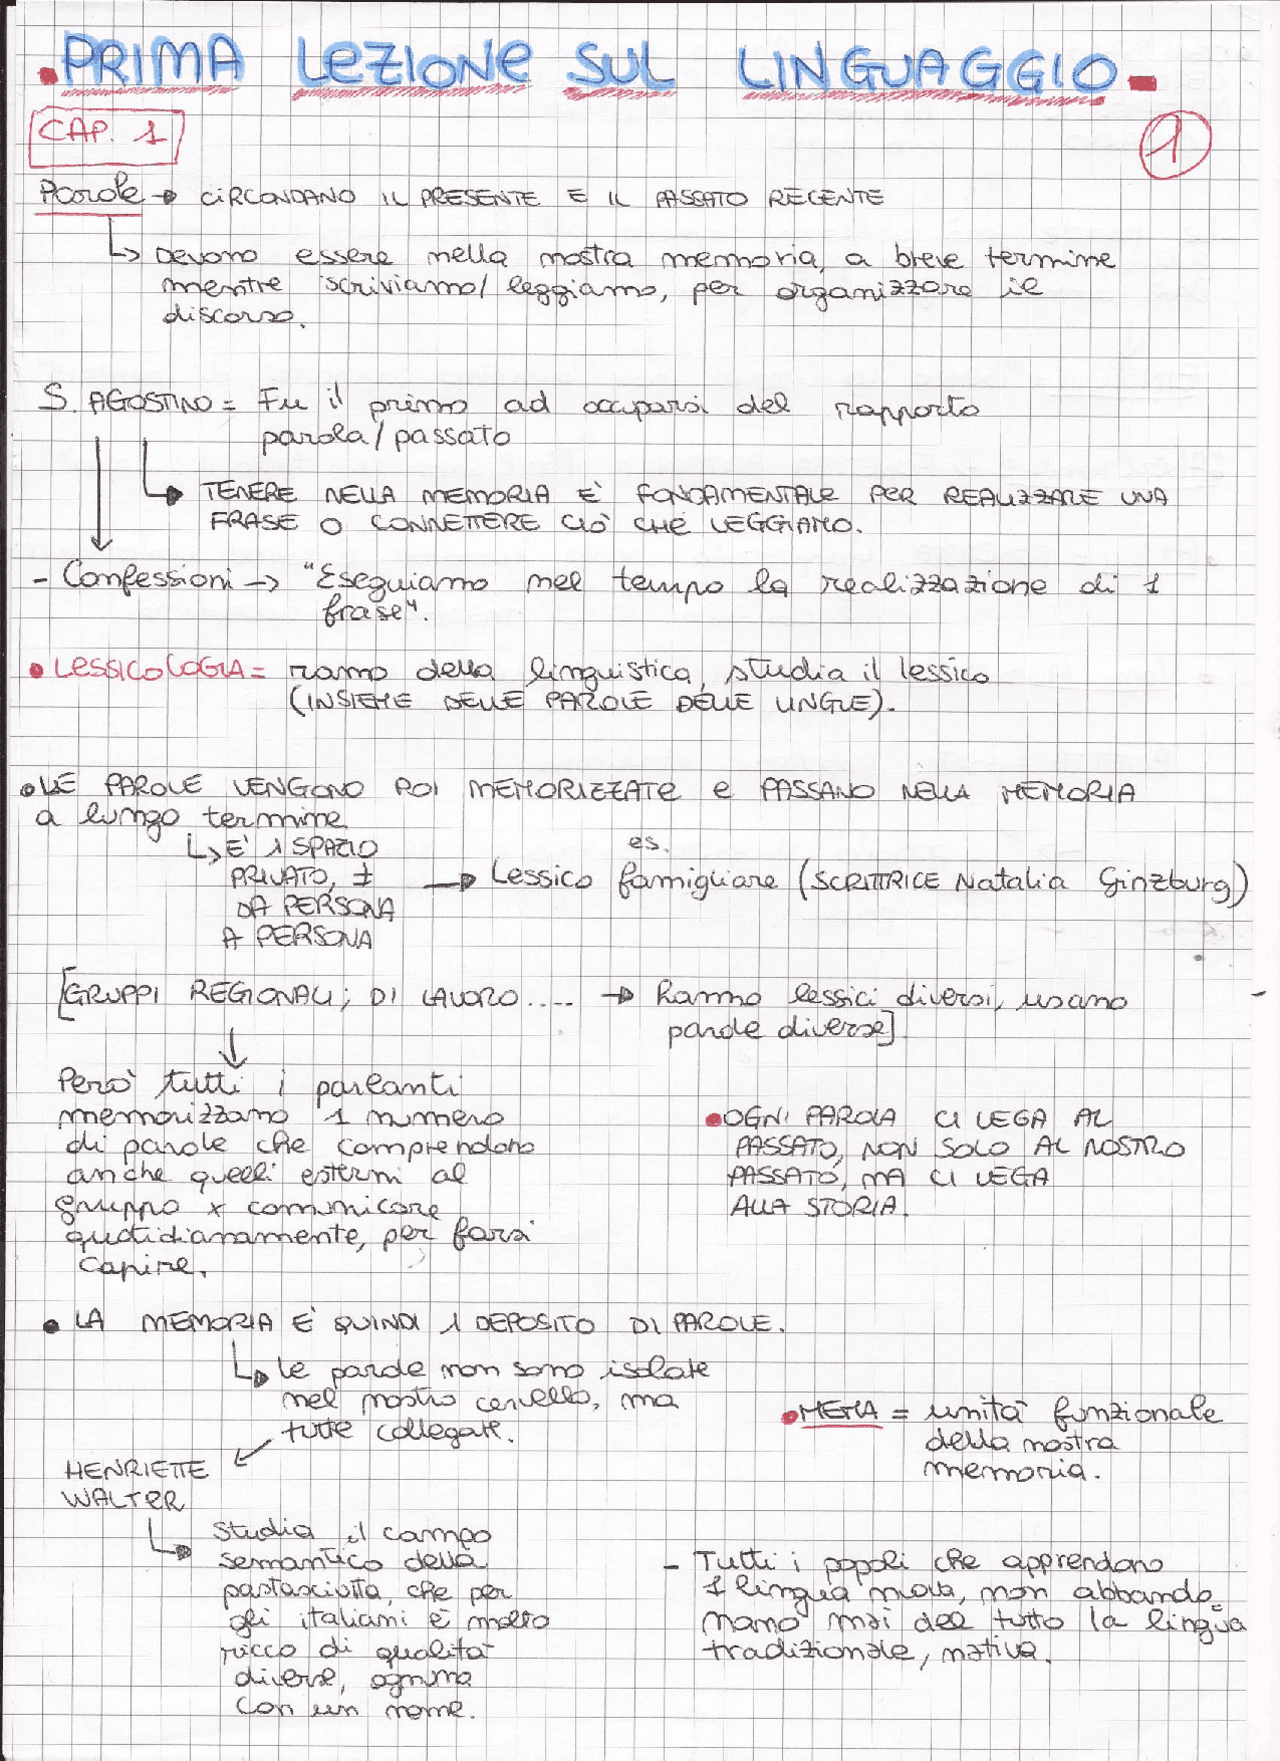 • PRIMA LEZIONE SUL LINGUAGGIO -
CAP. 1
1
Parole → CIRCONDANO IL PRESENTE E IL PASSATO RECENTE
↳ Devono essere nella nostra memoria, a breve termine
mentre scriviamo/leggiamo, per organizzare il
discorso.
S. AGOSTINO = Fu il primo ad occuparsi del rapporto
parola/passato
↳ TENERE NELLA MEMORIA E' FONDAMENTALE PER REALIZZARE UNA
FRASE O CONNETTERE CIÒ CHE LEGGIAMO.
- Confessioni → "Eseguiamo nel tempo la realizzazione di 1
frase".
• LESSICOLOGIA = ramo della linguistica, studia il lessico
(INSIEME DELLE PAROLE DELLE LINGUE).
• LE PAROLE VENGONO POI MEMORIZZATE E PASSANO NELLA MEMORIA
a lungo termine
↳ E' 1 SPAZIO
PRIVATO, ≠
DA PERSONA
A PERSONA
es.
→ Lessico famigliare (SCRITTRICE Natalia Ginzburg)
[GRUPPI REGIONALI; DI LAVORO.... → hanno lessici diversi, usano
parole diverse]
Però tutti i parlanti
memorizzano 1 numero
di parole che comprendono
anche quelli esterni al
gruppo x comunicare
quotidianamente, per farsi
capire.
• OGNI PAROLA CI LEGA AL
PASSATO, NON SOLO AL NOSTRO
PASSATO, MA CI LEGA
ALLA STORIA.
• LA MEMORIA E' QUINDI 1 DEPOSITO DI PAROLE.
↳ le parole non sono isolate
nel nostro cervello, ma
tutte collegate.
• MEMA = unità funzionale
della nostra
memoria.
HENRIETTE
WALTER
↳ Studia il campo
semantico della
pastasciutta, che per
gli italiani è molto
ricco di qualità
diverse, ognuna
con un nome.
- Tutti i popoli che apprendono
1 lingua nuova, non abbando=
nano mai del tutto la lingua
tradizionale, nativa.